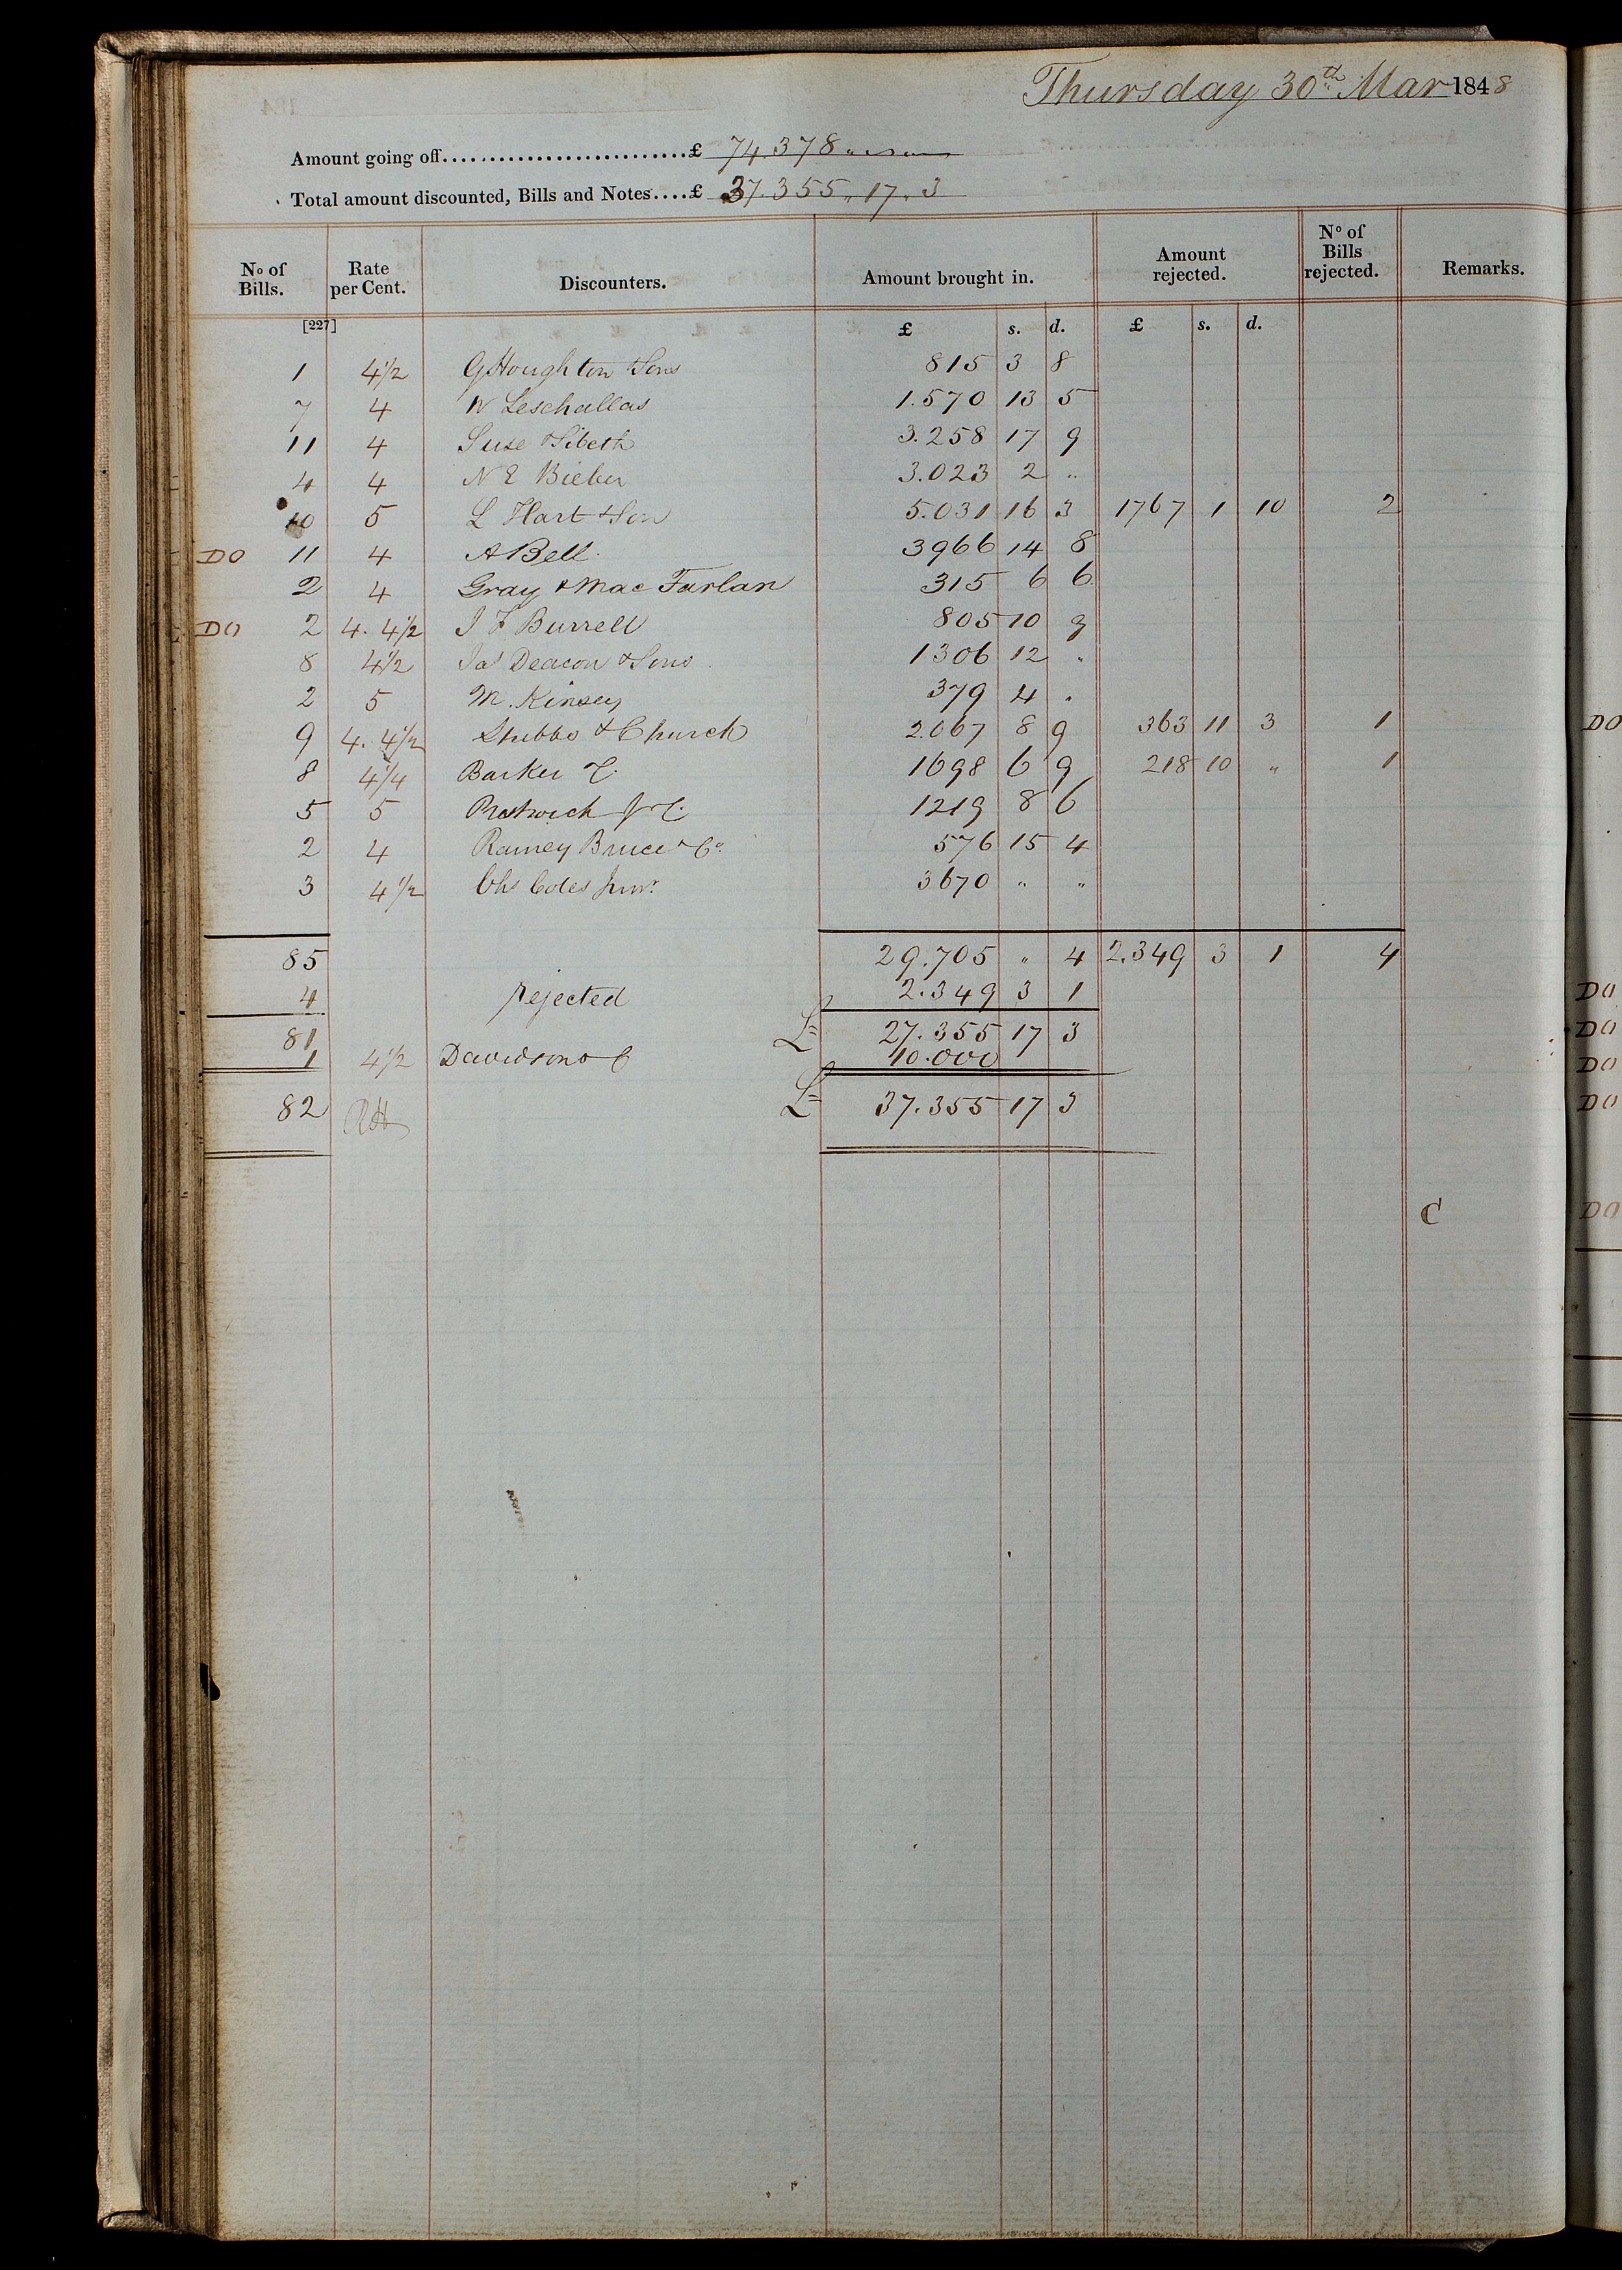 Thursday 30th Mar 1848
Amount going off...........................£ 74.378 " — " —
Total amount discounted, Bills and Notes....£ 37.355 " 17 " 3
No of Bills. Rate per Cent. Discounters. Amount brought in. Amount rejected. No of Bills rejected. Remarks.
[227] £ s. d. £ s. d.
1 4½ G Houghton & Sons 815 3 8
7 4 W Leschallas 1.570 13 5
11 4 Suse & Sibeth 3.258 17 9
4 4 N E Bieber 3.023 2 "
10 5 L Hart & Son 5.031 16 3 1767 1 10 2
DO 11 4 A Bell 3966 14 8
2 4 Gray & Mac Farlan 315 6 6
DO 2 4. 4½ J F Burrell 805 10 9
8 4½ Jas Deacon & Sons 1306 12 "
2 5 M. Kinsey 379 4 "
9 4. 4½ Stubbs & Church 2.067 8 9 363 11 3 1
8 4¼ Barker T. 1698 6 9 218 10 " 1
5 5 Prestwich J & C. 1219 8 6
2 4 Ramey Bruce & Co. 576 15 4
3 4½ Chs Coles Junr. 3670 " "
85 29.705 " 4 2.349 3 1 4
4 rejected 2.349 3 1
81 £ 27.355 17 3
1 4½ Davidsons & C 10.000
82 RH £ 37.355 17 3
C
DO
DO
DO
DO
DO
DO